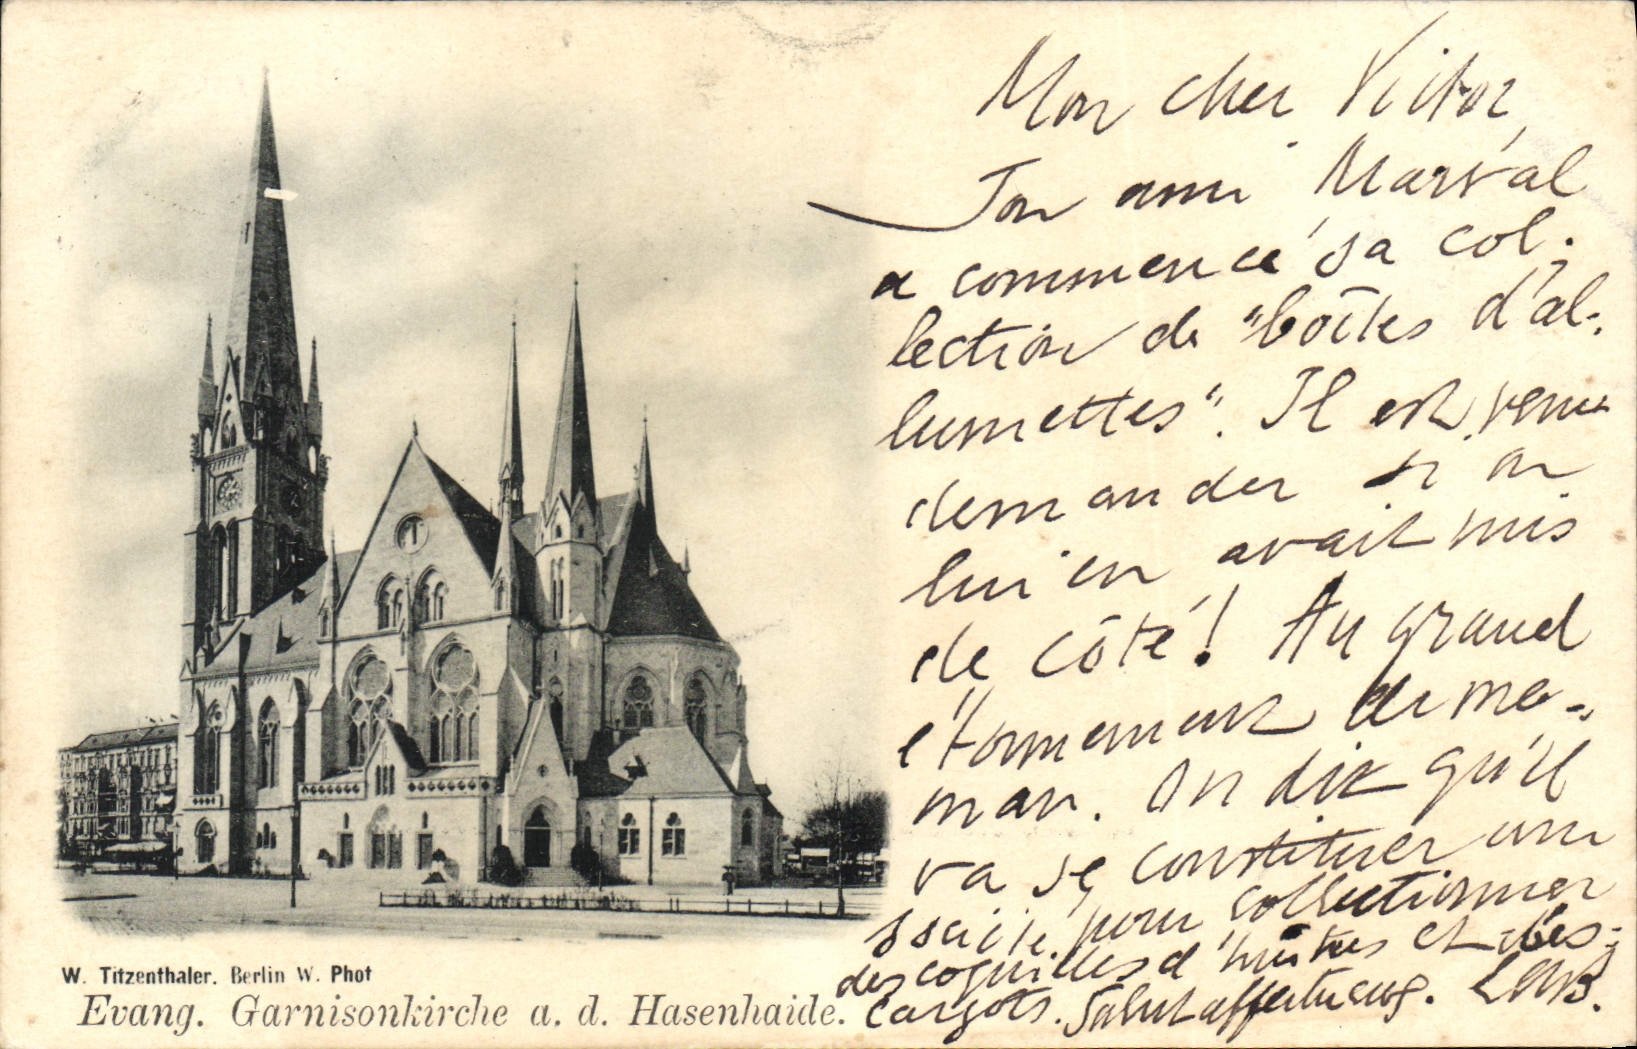 Mon cher Victor,
Ton ami Marval
a commencé sa col-
lection de "boîtes d'al-
lumettes". Il est venu
demander si on
lui en avait mis
de côté! Au grand
étonnement de ma-
man. On dit qu'il
va se constituer une
société pour collectionner
des coquilles d'huîtres et d'es-
cargots. Salut affectueux.
W. Titzenthaler. Berlin W. Phot
Evang. Garnisonkirche a. d. Hasenhaide.